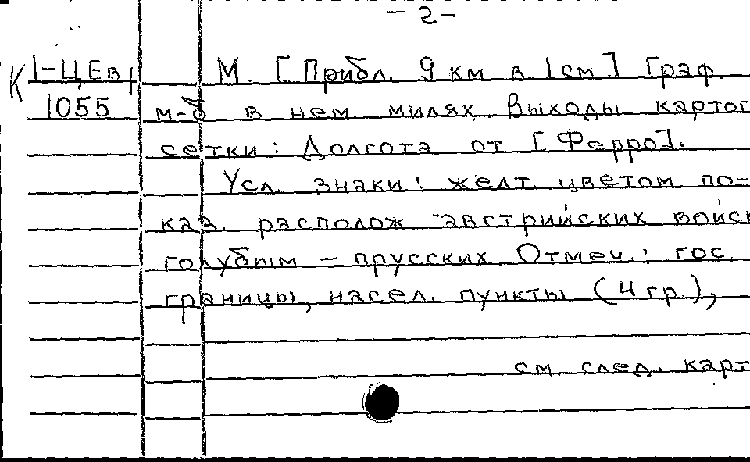 - 2 -
К 1-ЦЕв1 М. [Прибл. 9 км в 1 см.] Граф.
1055 м-б в нем милях. Выходы картог
сетки: Долгота от [Ферро].
Усл. знаки: желт. цветом по-
каз. располож австрийских войск
голубым - прусских. Отмеч.: гос.
границы, насел. пункты (4 гр.),
см. след. карт